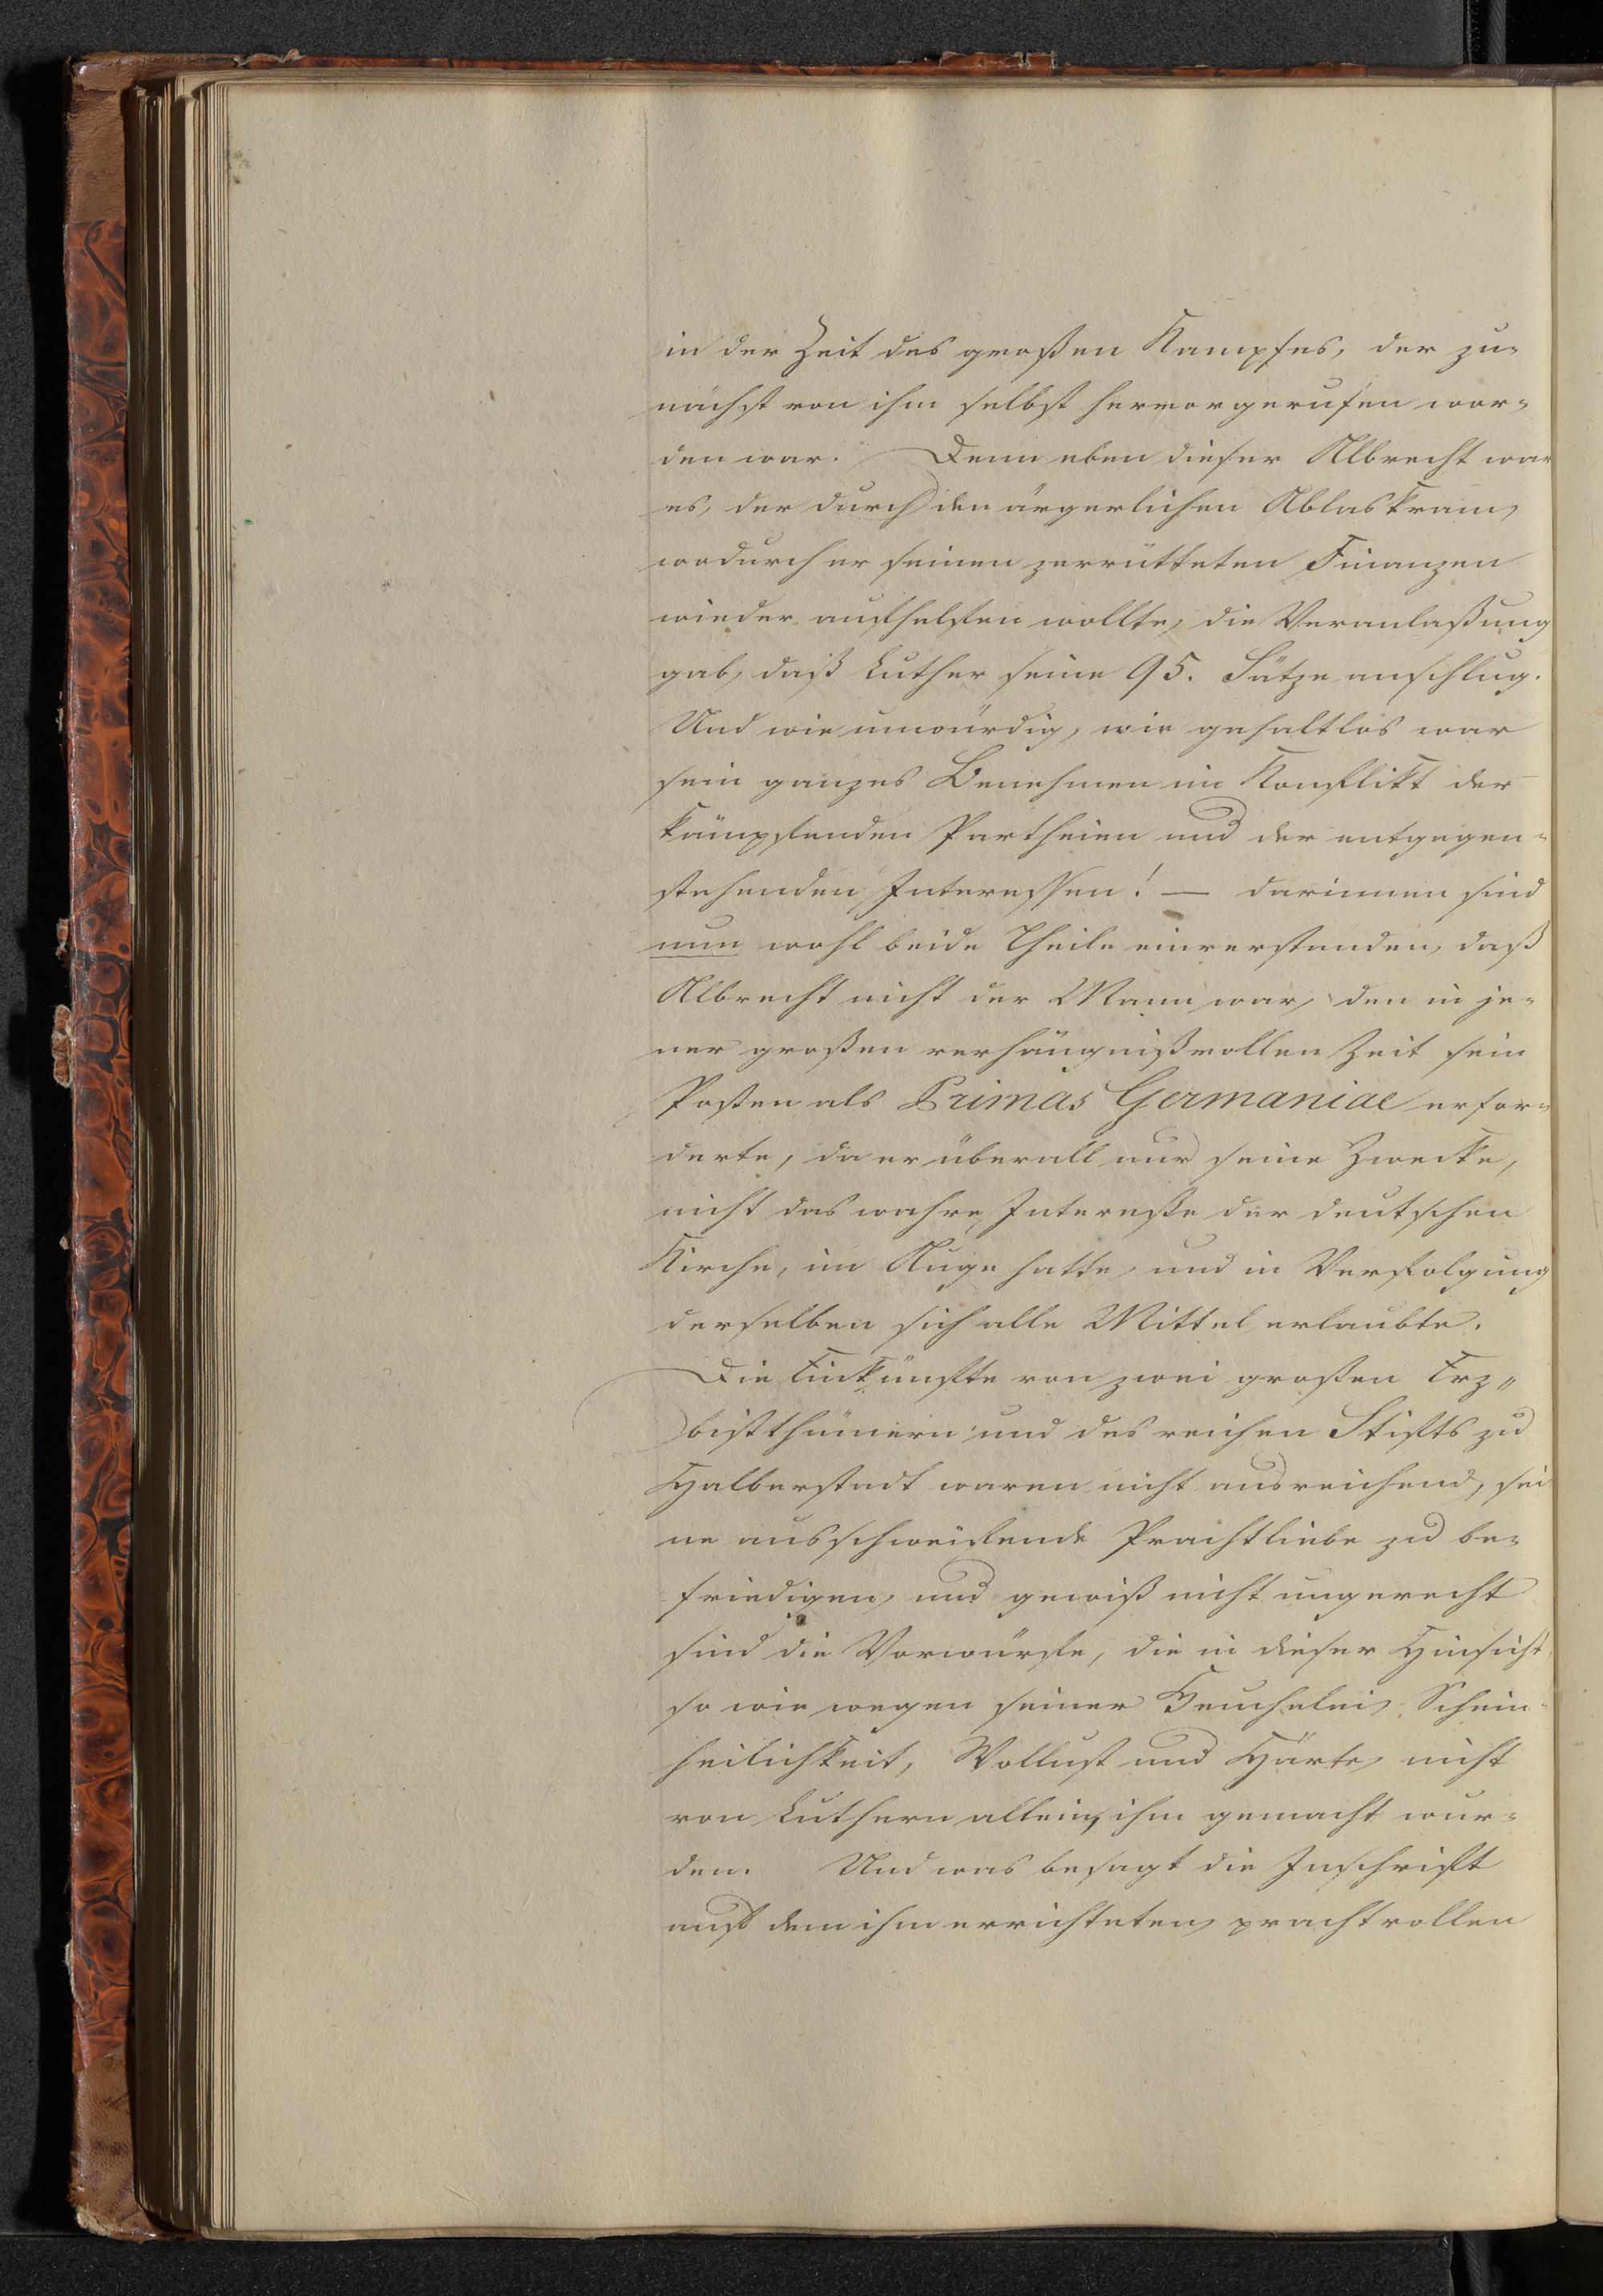 in der Zeit des großen Kampfes, der zu-
nächst von ihm selbst hervorgerufen wor-
den war. Denn eben dieser Albrecht war
es, der durch den ärgerlichen Ablaskram,
wodurch er seinen zerrütteten Finanzen
wieder aufhelfen wollte, die Veranlaßung
gab, daß Luther seine 95. Sätze anschlug.
Und wie unwürdig, wie gehaltlos war
sein ganzes Benehmen im Konflikt der
kämpfenden Partheien und der entgegen-
stehenden Interessen! — darinnen sind
nun wohl beide Theile einverstanden, daß
Albrecht nicht der Mann war, den in je-
ner großen verhängnißvollen Zeit sein
Posten als Primas Germaniae erfor-
derte, da er überall nur seine Zwecke,
nicht das wahre Intereße der deutschen
Kirche, im Auge hatte, und in Verfolgung
derselben sich alle Mittel erlaubte.
Die Einkünfte von zwei großen Erz-
bistthümern und des reichen Stifts zu
Halberstadt waren nicht ausreichend, sei
ne ausschweifende Prachtliebe zu be-
friedigen, und gewiß nicht ungerecht
sind die Vorwürfe, die in dieser Hinsicht
so wie wegen seiner Heuchelei, Schein-
heilichkeit, Wollust und Härte, nicht
von Luthern allein, ihm gemacht wur-
den. Und was besagt die Inschrift
auf dem ihm errichteten, prachtvollen